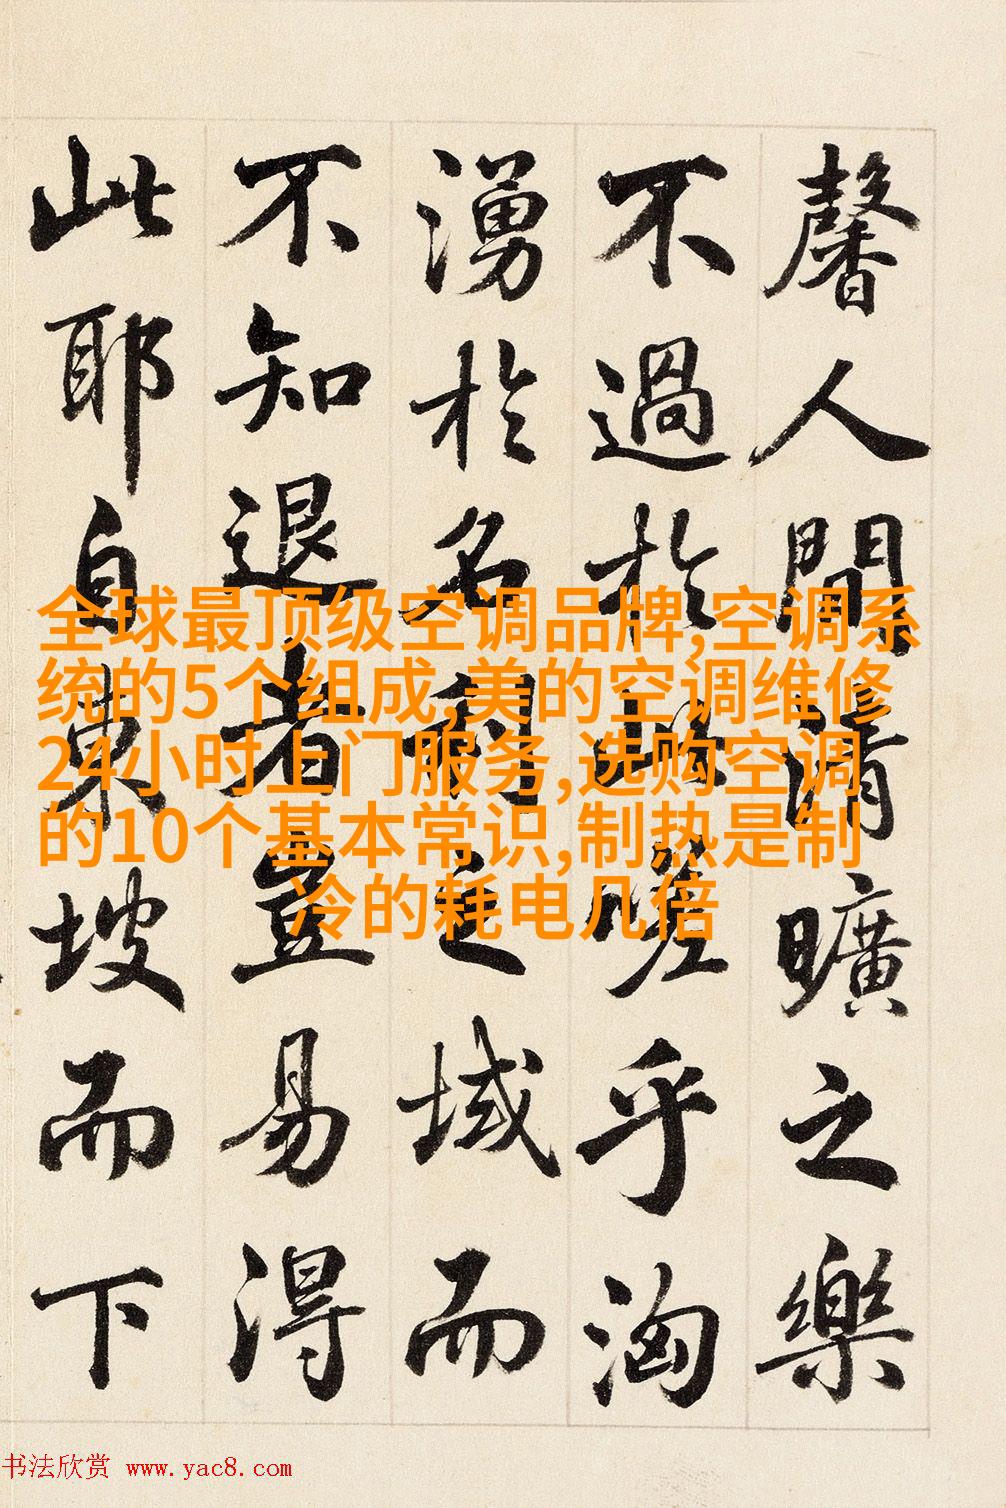 馨人間清曠之樂
不過於此嗟乎洶
湧於名利之域而
不知退者豈易得
此耶自東坡而下
全球最顶级空调品牌,空调系
统的5个组成,美的空调维修
24小时上门服务,选购空调
的10个基本常识,制热是制
冷的耗电几倍
书法欣赏 www.yac8.com